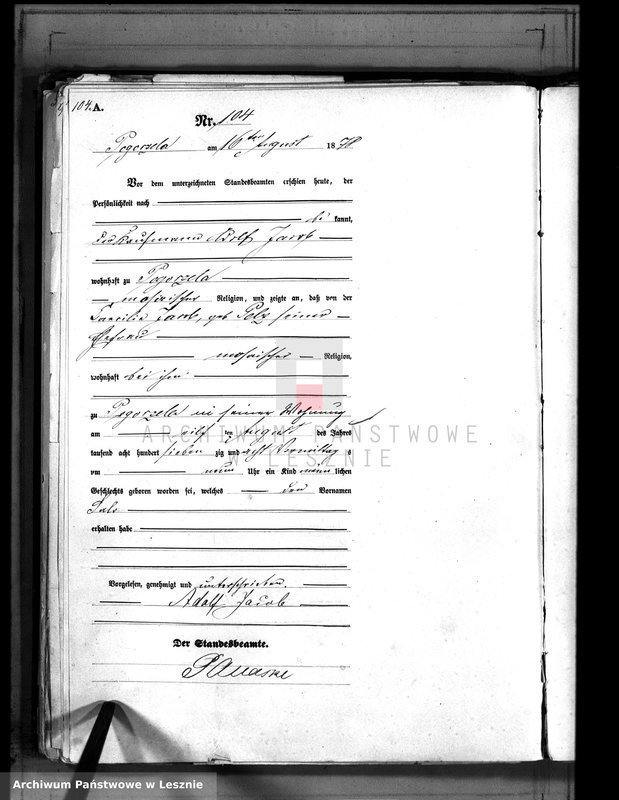 104. A.
Nr. 104
Pogorzela am 16ten August 1878
Vor dem unterzeichneten Standesbeamten erschien heute, der
Persönlichkeit nach
be kannt,
der Kaufmann Adolf Jacob
wohnhaft zu Pogorzela
mosaischer Religion, und zeigte an, daß von der
Caecilie Jacob, geb Pelz seiner
Ehefrau
mosaischer Religion,
wohnhaft bei ihm
zu Pogorzela in seiner Wohnung
am elften August des Jahres
tausend acht hundert sieben zig und acht Vormittag s
um neun Uhr ein Kind männ lichen
Geschlechts geboren worden sei, welches den Vornamen
Salo
erhalten habe
Vorgelesen, genehmigt und unterschrieben.
Adolf Jacob
Der Standesbeamte.
ARCHIWUM PAŃSTWOWE
W LESZNIE
Archiwum Państwowe w Lesznie